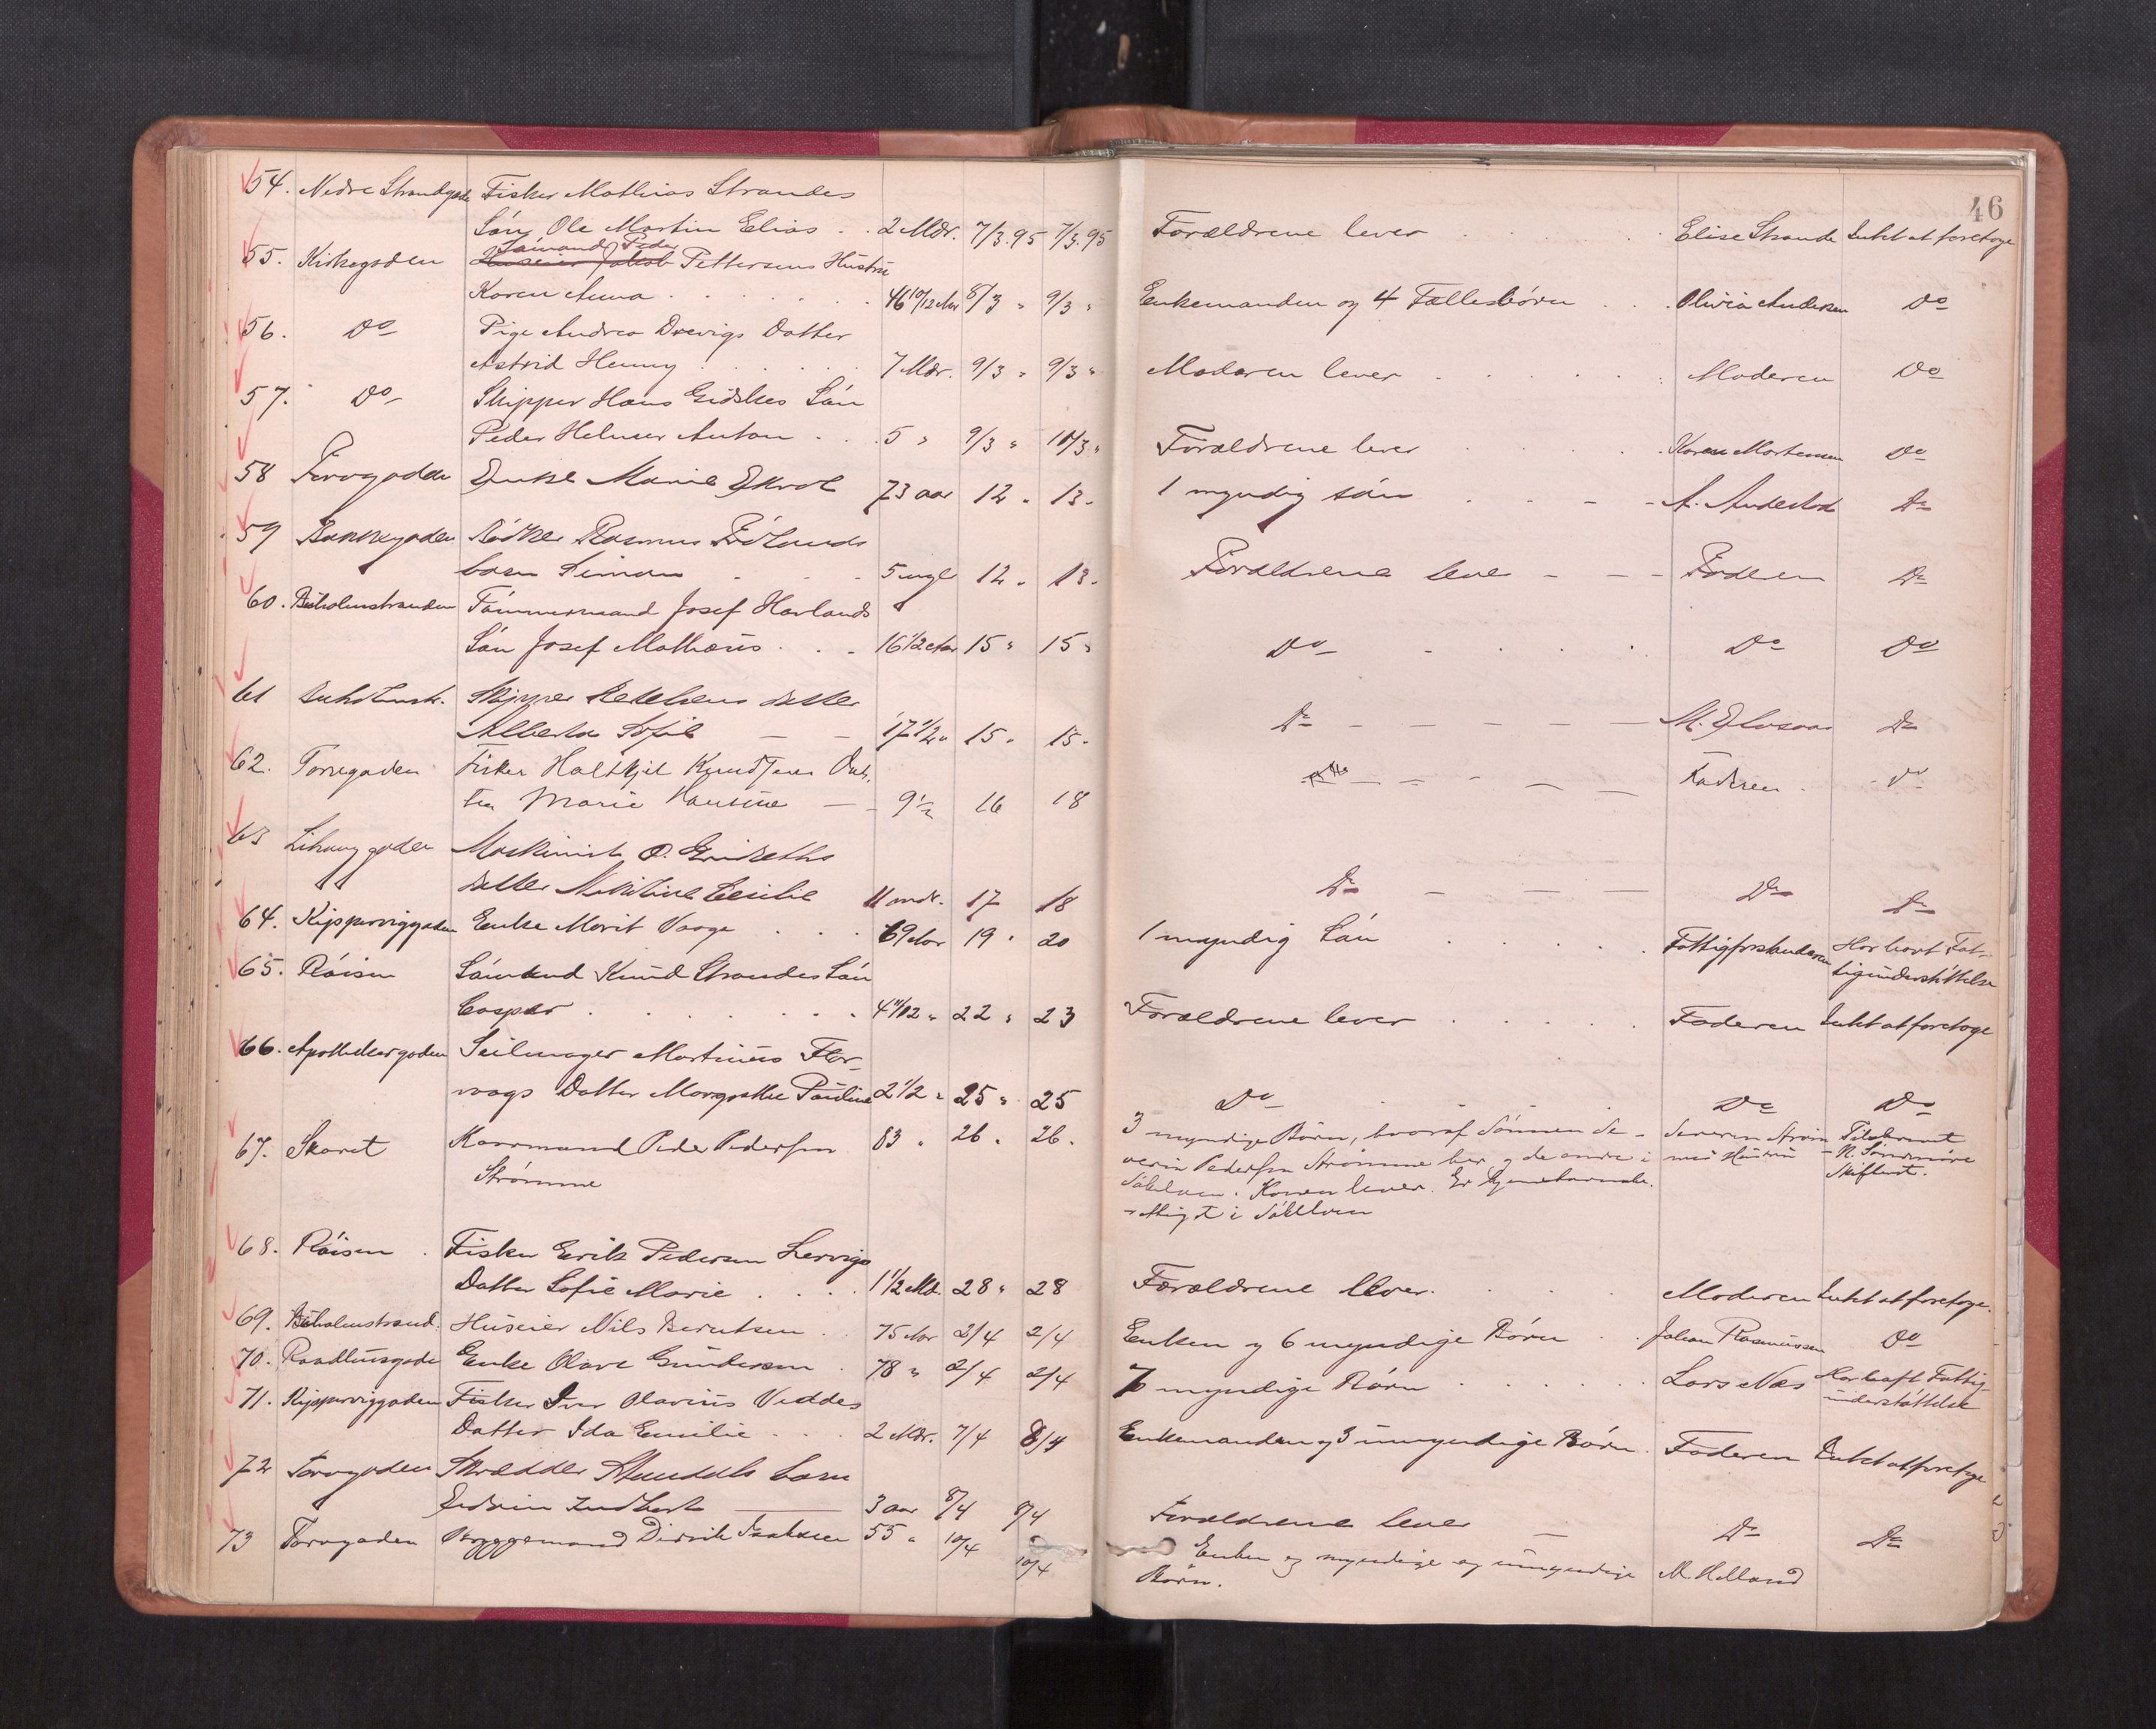 46
54. Nedre Strandgade Fisker Mathias Strandes
Sön Ole Martin Elias . . 2 Mdr. 7/3.95 7/3.95 Forældrene lever . . . Elise Strande Intet at foretage
55. Kirkegaden Sömand Peder
Huseier Jakob Pettersens Hustru
Karen Anna . . . 46 10/12 Aar 8/3 " 9/3 " Enkemanden og 4 Fællesbörn . . Olivia Andersen Do
56. Do Pige Andrea Drevigs Datter
Astrid Henny . . . 7 Mdr. 9/3 " 9/3 " Moderen lever . . . Moderen Do
57. Do Skipper Hans Gidskes Sön
Peder Helmer Anton . . . 5 " 9/3 " 10/3 " Forældrene lever . . . Karen Mortensen Do
58 Torvgaden Enke Marie Ekrol 73 aar 12 " 13 " 1 myndig sön - - - A. Anderson Do
59 Bakkegaden Bödker Rasmus
barn Simon - - 5 " 12 " 13 " Forældrene lever - - - Faderen Do
60. Buholmstranden Tömmermand Josef Havlands
Sön Josef Mathæus . . . 16 1/2 Aar 15 " 15 " Do . . . Do Do
61 Buholmstr. Skipper datter
Alberta Sofie - - 17 1/2 " 15 " 15 " Do - - - - - M. Do
62. Torvgaden Fisker Knudsens Dat-
ter Marie Hansine - - 9 1/2 16 18 - - - - Faderen Do
63 Lihauggaden Maskinist O.
datter Cecilie 11 mdr. 17 18 Do - - - Do Do
64. Kipperviggaden Enke Marit Vaage . . . 69 Aar 19 " 20 1 myndig Sön . . . Fattigforstanderen Har havt Fat-
tigunderstöttelse
65. Röisen Sömand Knud Strandes Sön
Caspar . . . 4 11/12 " 22 " 23 Forældrene lever . . . Faderen Intet at foretage
66. Apothekergaden Seilmager Martinus Flor-
vaags Datter Margrethe Pauline 2 1/2 " 25 " 25 Do . . . Do Do
67. Skaret Kaarmand Peder Pedersen 83 " 26 " 26 "
Strømme
3 myndige Börn, hvoraf Sönnen Se-
verin Pedersen Strømme her og de andre i
Sökelven. Konen lever. Er hjemstavns-
rettiget i Sökelven
Severin Ström-
mes Hustru
Tilskrevet
N. Söndmöre
Skifteret.
68. Röisen . Fisker Erik Pedersen Lervigs
Datter Sofie Marie . . . 1 1/2 Md. 28 " 28 Forældrene lever. . . . Moderen Intet at foretage.
69. Buholmstrand. Huseier Nils Berntsen . . 75 Aar 2/4 2/4 Enken og 6 myndige Börn . . Johan Rasmussen Do
70. Raadhusgade Enke Olave Gundersen . 78 " 2/4 2/4 7 myndige Börn . . . Lars Næs Har havt Fattig-
understöttelse
71. Kipperviggaden Fisker Iver Olavius Veddes
Datter Ida Emilie . . . 2 Mdr. 7/4 8/4 Enkemanden og 3 umyndige Börn . Faderen Intet at foretage
72 Torvgaden Skrædder Standals barn
Edvin 3 aar 8/4 8/4 Forældrene lever - Do Do
73 Torvgaden Bryggemand Didrik Isaksen 55 " 10/4 10/4 Enken og myndige og umyndige
Börn. M. Helland